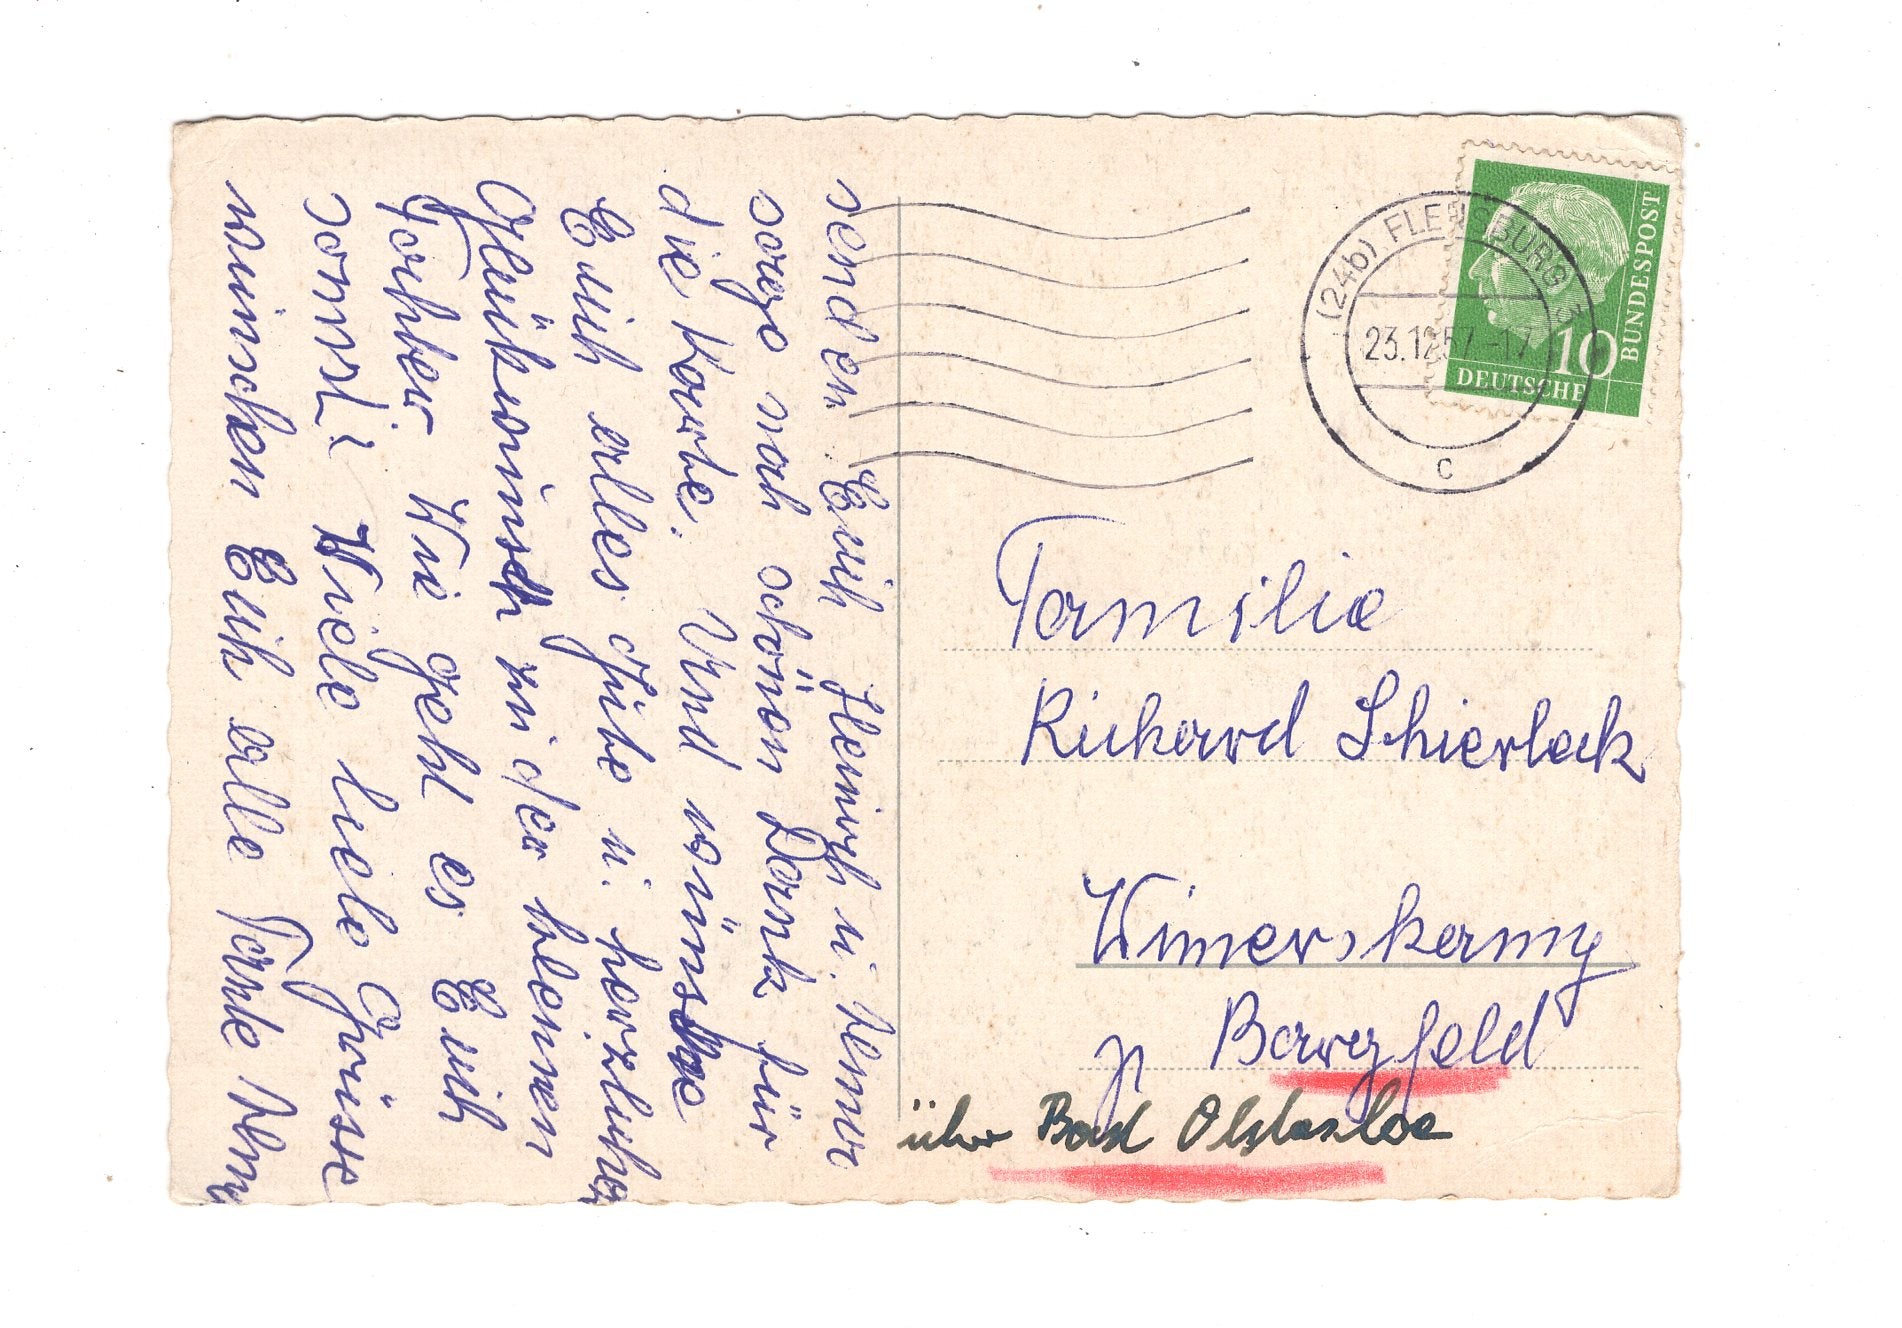 senden Euch Heinrich u. Klaus
sage noch schönen Dank für
die Karte. Und wünsche
Euch alles Gute u. herzlichen
Glückwunsch zu der kleinen
Tochter. Wie geht es Euch
sonst? Viele liebe Grüsse
wünschen Euch alle Tante
(24b) FLENSBURG 3
23.12.57.-17
c
DEUTSCHE
BUNDESPOST
10
Familie
Richard Schierleck
Wimerskamp
p Bargfeld
über Bad Oldesloe